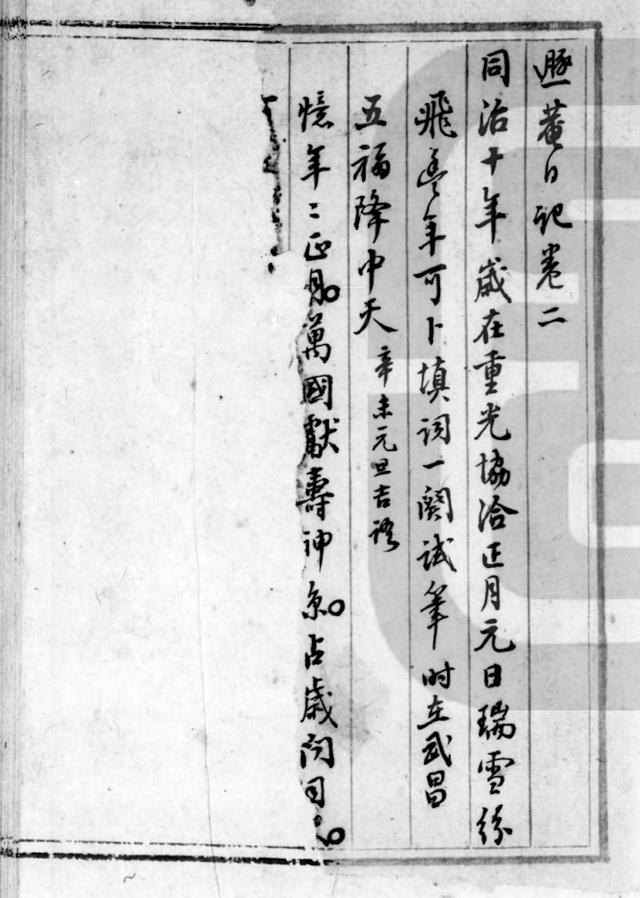 遯菴日記卷二
同治十年歲在重光協洽正月元日瑞雪紛
飛豐年可卜填詞一闋試筆時在武昌
五福降中天辛未元旦吉語
憶年〻正月萬國獻壽神京占歲問